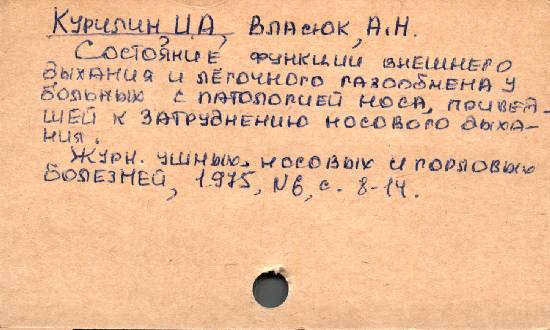 Курилин, И.А., Власюк, А.Н.
Состояние функции внешнего
дыхания и лёгочного газообмена у
больных с патологией носа, привед-
шей к затруднению носового дыха-
ния.
Журн. ушных, носовых и горловых
болезней, 1975, №6, с. 8-14.